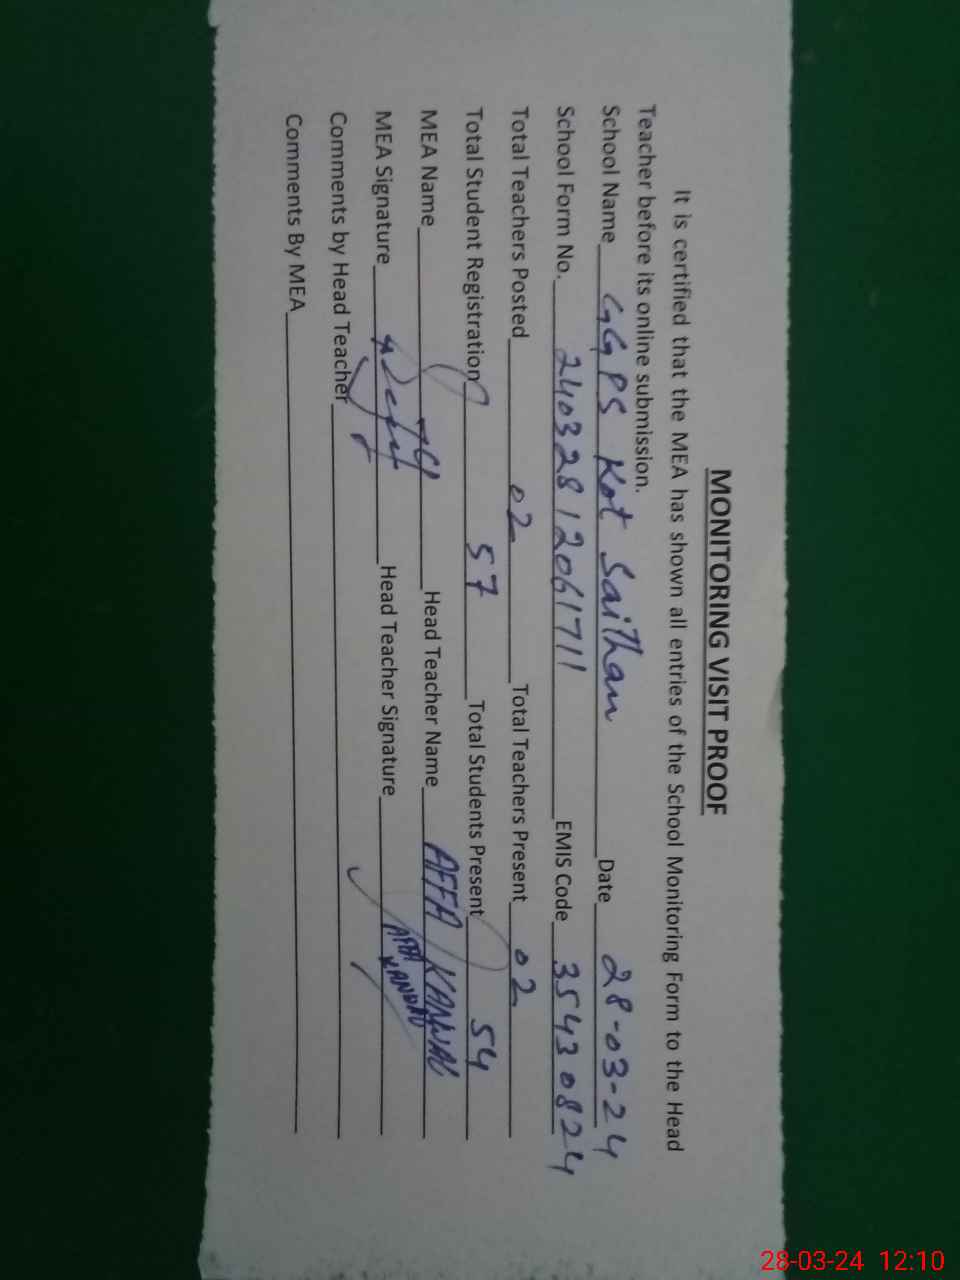 MONITORING VISIT PROOF
It is certified that the MEA has shown all entries of the School Monitoring Form to the Head
Teacher before its online submission.
School Name GGPS Kot Saithan Date 28-03-24
School Form No. 24032812061711 EMIS Code 35430824
Total Teachers Posted 02 Total Teachers Present 02
Total Student Registration 57 Total Students Present 54
MEA Name Head Teacher Name AFFA KANWAL
MEA Signature Head Teacher Signature
Comments by Head Teacher
Comments By MEA
28-03-24 12:10